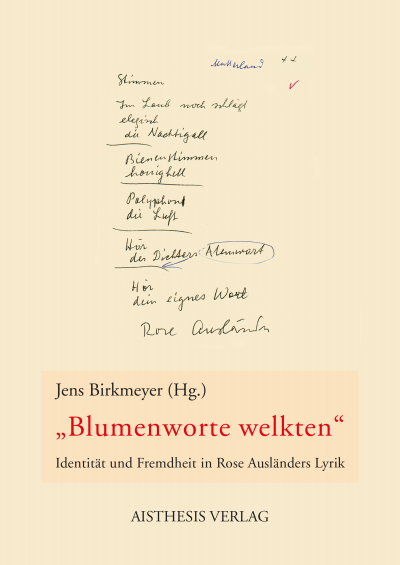 Mutterland ++
Stimmen
✓
Im Laub noch schlägt
elegisch
die Nachtigall
Bienenstimmen
honighell
Polyphon
die Luft
Hör
des Dichters Atemwort
Hör
dein eignes Wort
Rose Ausländer
Jens Birkmeyer (Hg.)
„Blumenworte welkten“
Identität und Fremdheit in Rose Ausländers Lyrik
AISTHESIS VERLAG